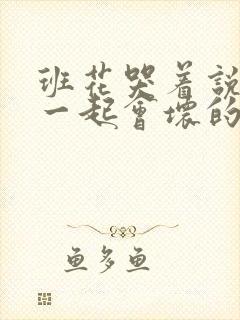 班花哭着說
一起會壞的
鱼多鱼